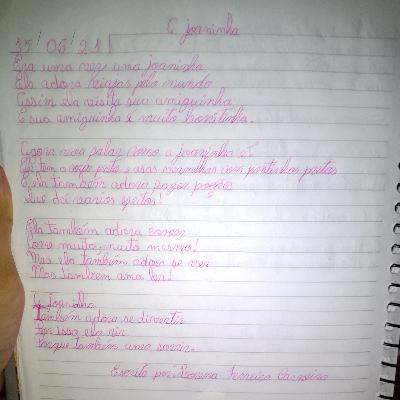 A joaninha
15/06/21
Era uma vez uma joaninha
Ela adora viajar pelo mundo
Assim ela visita sua amiguinha
E sua amiguinha é muito bonitinha.
Agora vou falar como a joaninha é
Ela tem o corpo preto, asas vermelhas com pontinhos pretos
E ela também adora fazer poções
Que dá varios efeitos!
Ela também adora comer
Come muito, muito mesmo!
Mas ela também adora se ver
Mas também ama ler!
A Joaninha
também adora se divertir
Por isso ela rir
Porque também ama sorrir.
Escrito por: Ferreira